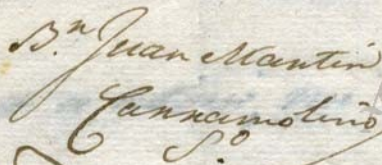 Bn Juan Martin
Carramolino
So